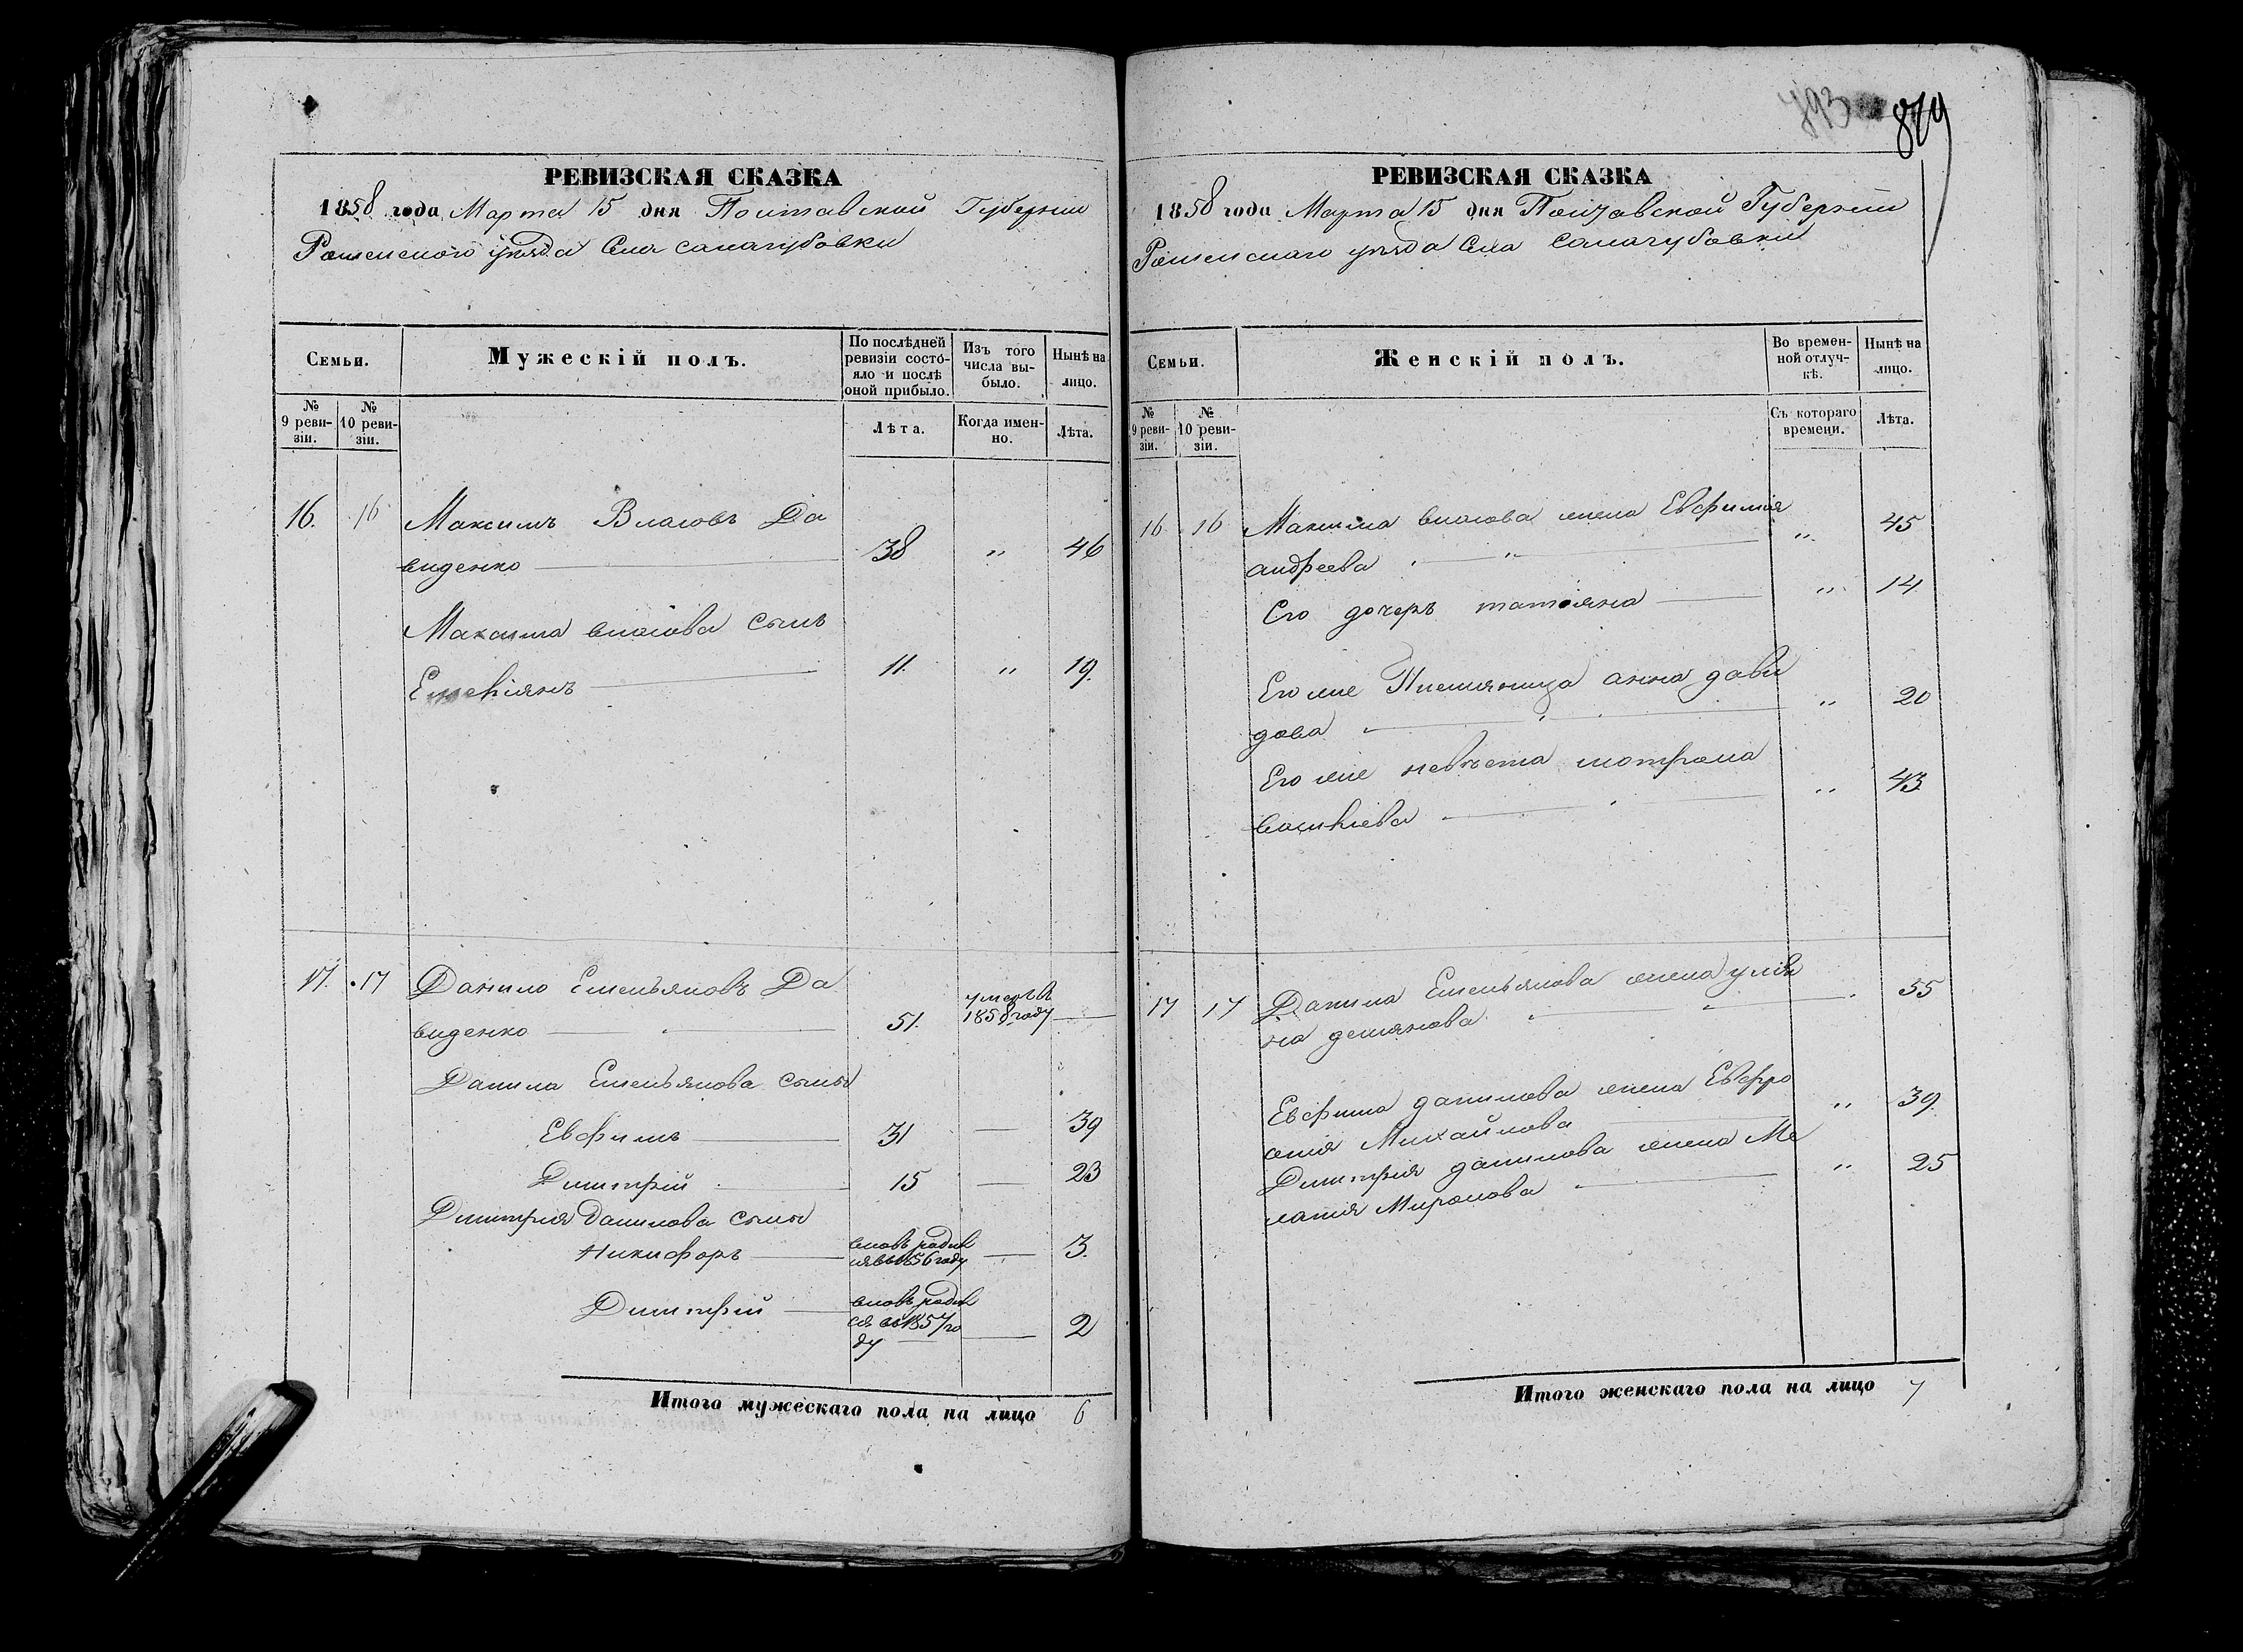 РЕВИЗСКАЯ СКАЗКА
1858 года Марта 15 дня Полтавской Губернии
Роменского уѣзда Села салагубовки
Семьи.
Мужескій полъ.
По послѣдней ревизіи состояло и послѣ оной прибыло.
Изъ того числа выбыло.
Нынѣ на лицо.
№ 9 ревизіи.
№ 10 ревизіи.
Лѣта.
Когда именно.
Лѣта.
16. 16 Максимъ Власовъ Да
виденко 38 " 46
Максима власова сынъ
11. " 19.
17. 17 Данило Емельяновъ Да
виденко 51. умеръ в 1858 году
Данила Емельянова сыны
Евфимъ 31 39
Димитрій 15 23
Димитрія Данилова сыны
Никифоръ вновь родил
ся въ 1856 году 3.
Димитрій вновь родил
ся въ 1857 го
ду 2
Итого мужескаго пола на лицо 6
879
РЕВИЗСКАЯ СКАЗКА
1858 года Марта 15 дня Полтавской Губернии
Роменскаго уѣзда Села Салагубовки
Семьи.
Женскій полъ.
Во временной отлучкѣ.
Нынѣ на лицо.
№ 9 ревизіи.
№ 10 ревизіи.
Съ котораго времени.
Лѣта.
16 16 Максима власова жена Евфимія
андреева " 45
Его дочерь татіяна " 14
Его же Племяница анна дави
дова " 20
Его же невѣста мотрона
васильева " 43
17 17 Данила Емельянова жена улія
на демянова 55
Евфима данилова жена Евфро
синія Михайлова " 39.
Димитрія данилова жена Ме
ланія Миронова " 25
Итого женскаго пола на лицо 7